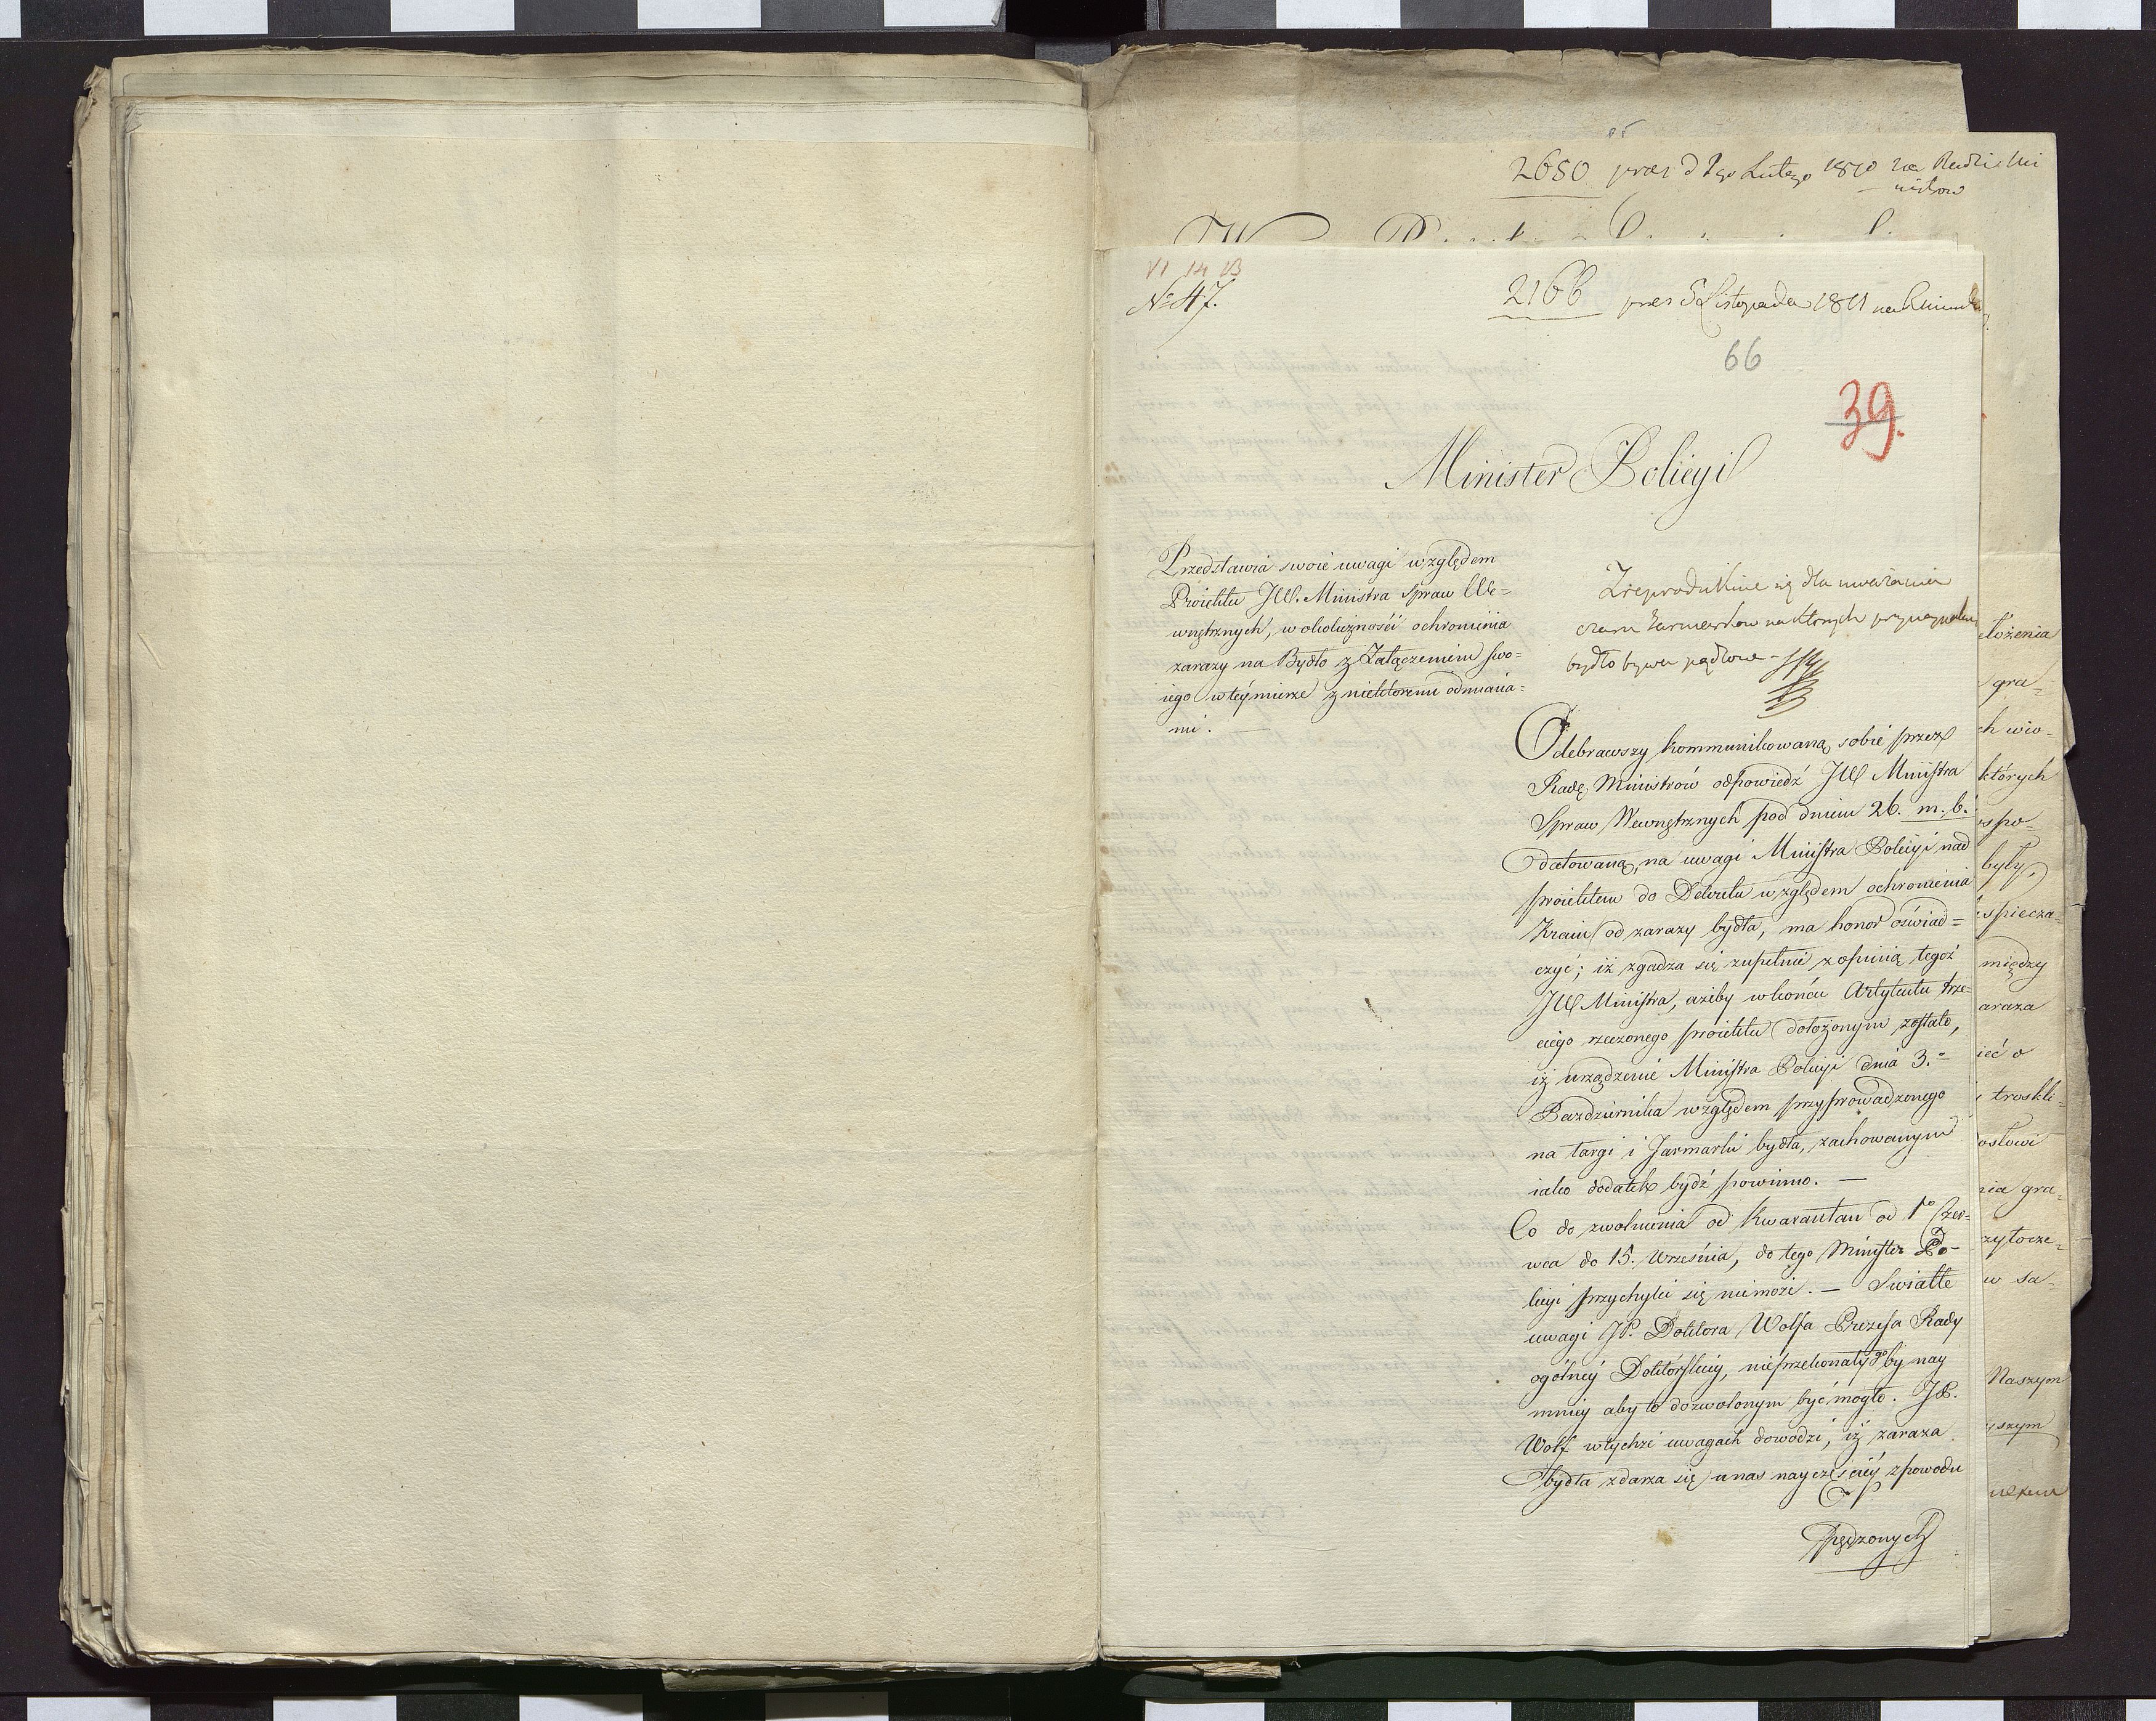 2680 prez d 1go Lutego 1810 na Radzie Mi
nistrow
VI 14 13
No 47.
2166 prez 5 Listopada 1811 na
66
39.
Minister Policyi
Przedstawia swoie uwagi względem
Proiektu JW. Ministra Spraw We=
wnętrznych, w okoliczności ochronienia
zarazy na Bydło z Załączeniem swo=
iego w tey mierze z niektoremi odmiana=
mi. —
Zreprodukuie się dla uważania
czasu Jarmarkow na ktorych
bydło bywa pędzone -
Odebrawszy kommunikowaną sobie przez
Radę Ministrów odpowiedź JW Ministra
Spraw Wewnętrznych pod dniem 26. m. b.
datowaną, na uwagi Ministra Policyi nad
proiektem do Dekretu względem ochronienia
Kraiu od zarazy bydła, ma honor oświad=
czyć; iż zgadza się zupełnie z opinią tegoż
JW Ministra, ażeby w końcu Artykułu trze=
ciego rzeczonego proiektu dołożonym zostało,
iż urządzenie Ministra Policyi dnia 3.o
Pazdziernika względem przyprowadzonego
na targi i Jarmarki bydła, zachowanym
iako dodatek bydź powinno. —
Co do zwolnienia od Kwarantan od 1o Czer=
wca do 15. Września, do tego Minister Po-
licyi przychylić się niemoże. — Swiatłe
uwagi JP. Doktora Wolfa Prezesa Rady
ogólney Doktórskiey, nieprzekonały go by nay
mniey aby to dozwolonym być mogło. JP.
Wolf w tychże uwagach dowodzi, iż zaraza
bydła zdarza się u nas nayczęściey z powodu
pędzonych
łożenia
gra=
ch wio=
których
spo=
były,
spiecza=
między
araza
ieć o
troskli=
osłowi
nia gra=
zytocze=
w sa=
Naszym
szym